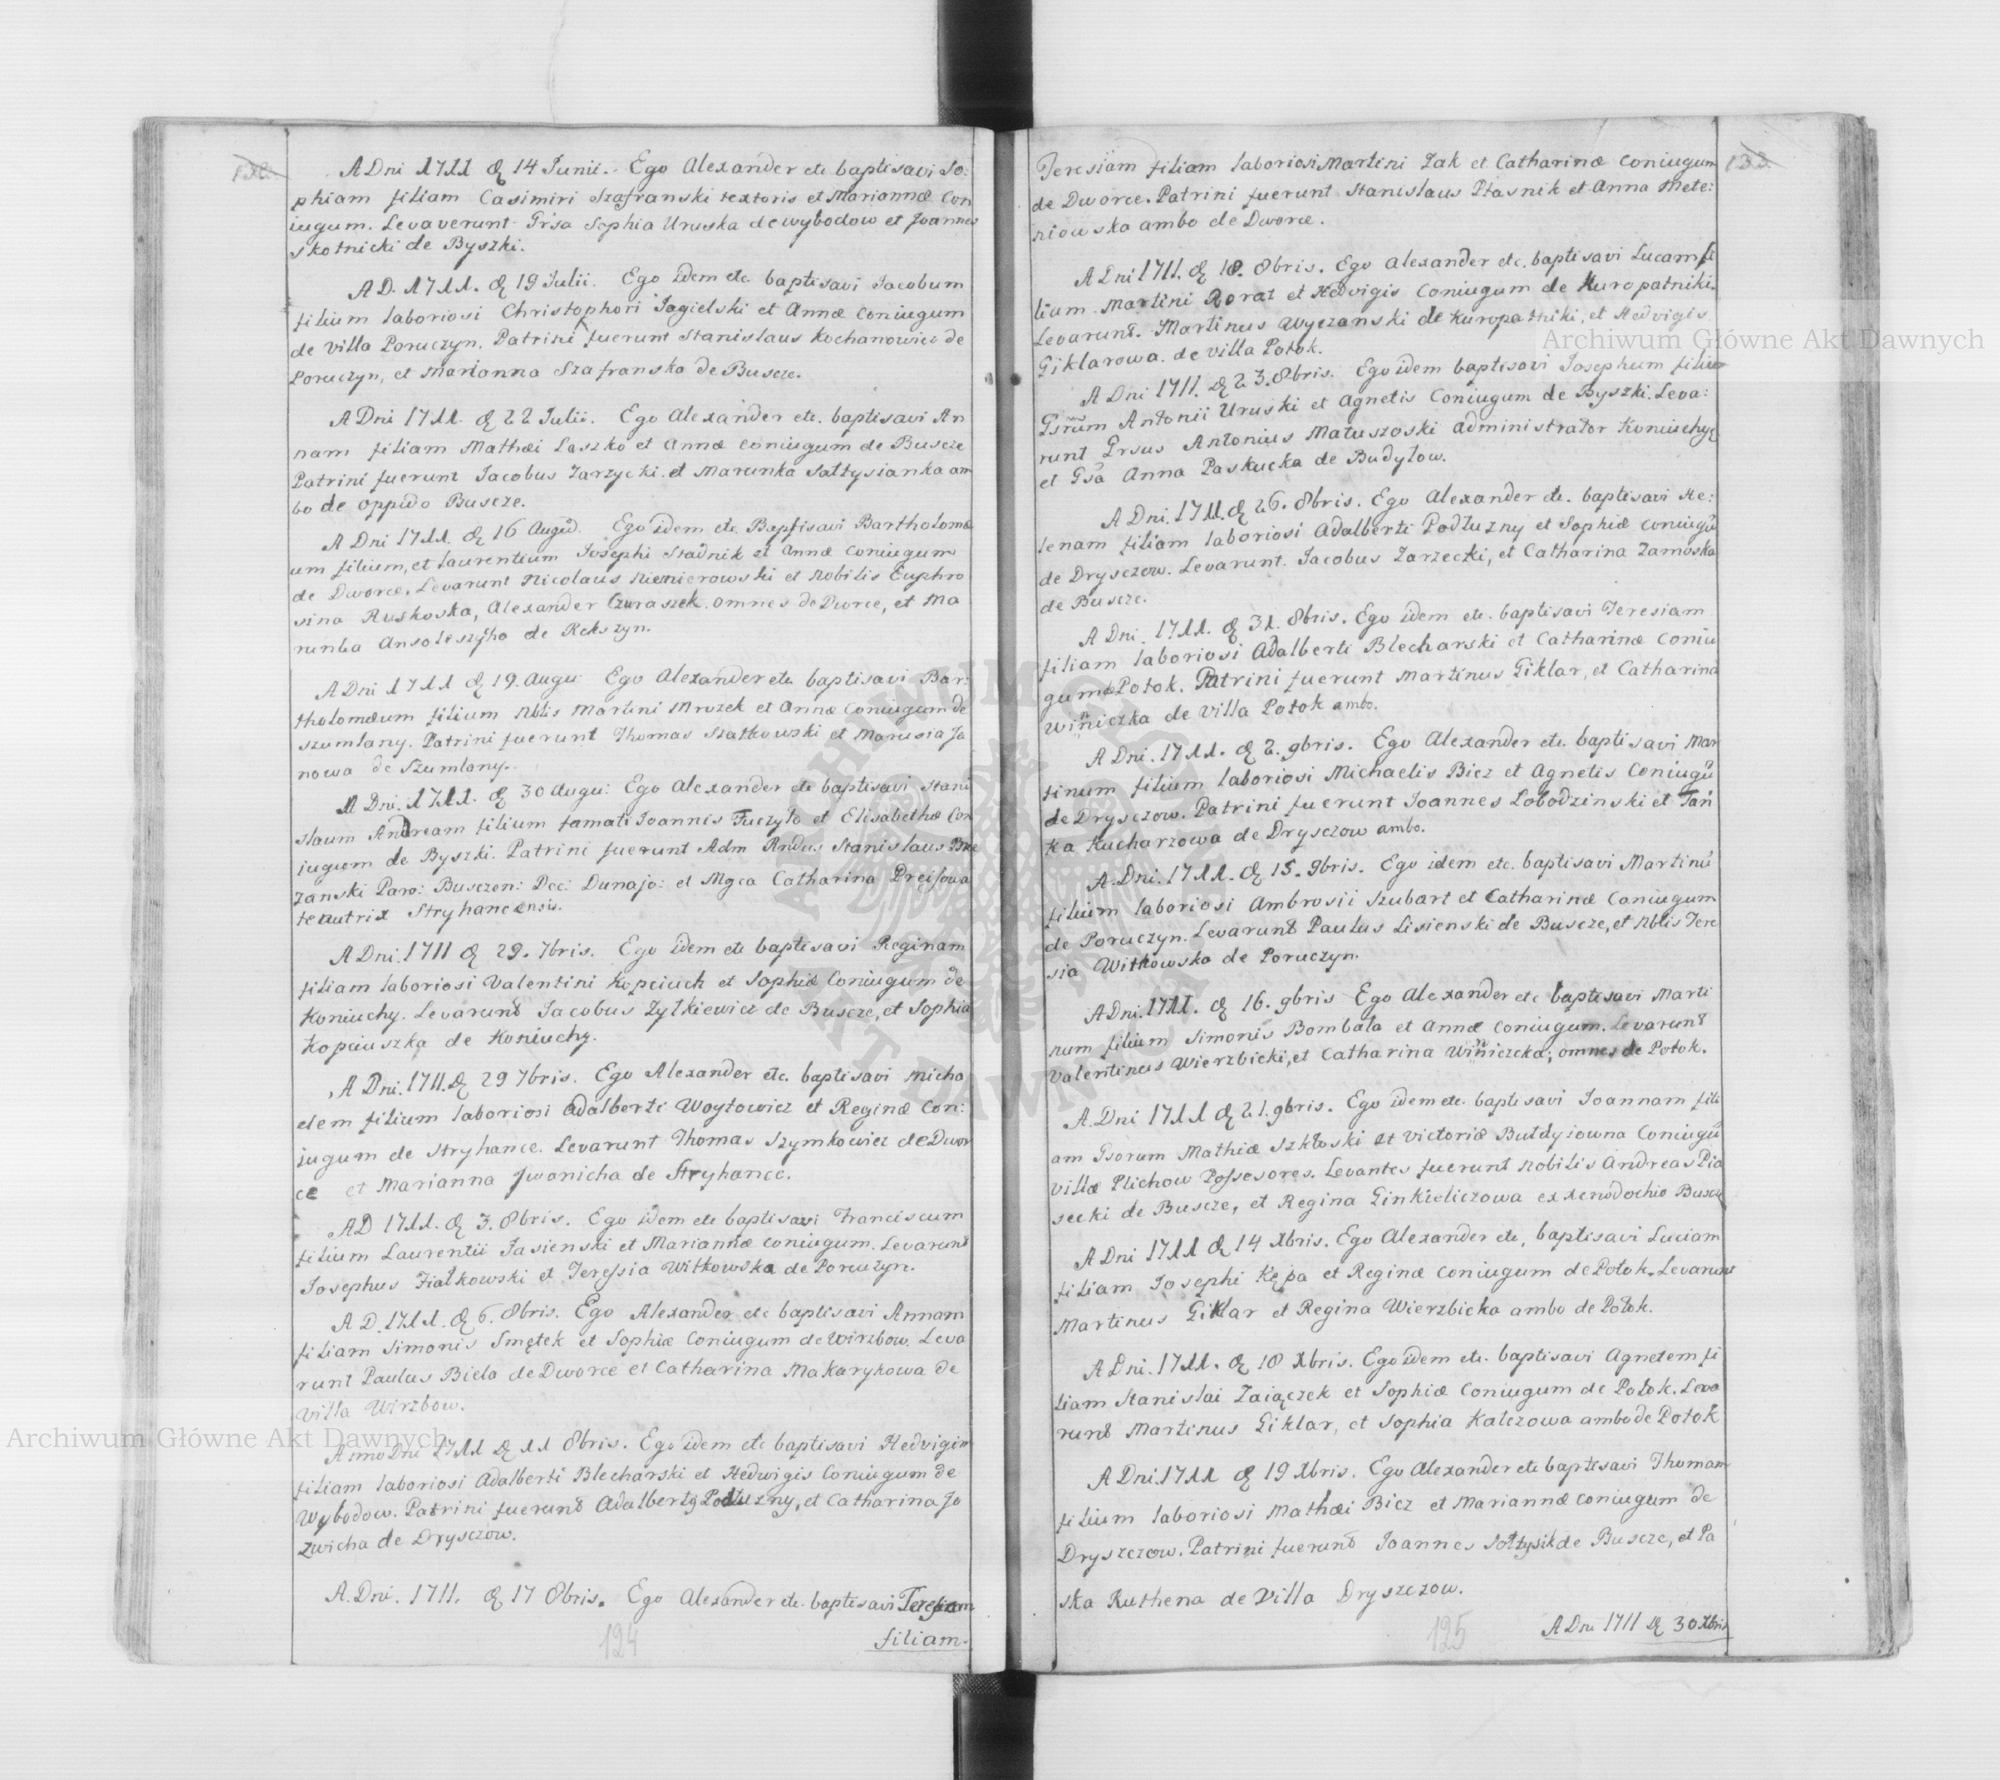 132.
A Dni 1711 d 14 Junii. Ego Alexander etc baptisavi So:
phiam filiam Casimiri Szafranski textoris et Mariannæ Con
iugum. Levaverunt Grsa Sophia Uruska de Wybodow et Joannes
Skotnicki de Byszki.
A D. 1711. d 19 Julii. Ego idem etc baptisavi Jacobum
filium laboriosi Christophori Jagielski et Annæ Coniugum
de Villa Poruczyn. Patrini fuerunt Stanislaus Kochanowicz de
Poruczyn, et Marianna Szafranska de Buscze.
A Dni 1711. d 22 Julii. Ego Alexander etc. baptisavi An
nam filiam Mathæi Laszko et Annæ Coniugum de Buscze
Patrini fuerunt Jacobus Zarzycki et Marunka Sałtysianka am
bo de oppido Buscze.
A Dni 1711. d 16 Augu. Ego idem etc Baptisavi Bartholomæ
um filium, et Laurentium Josephi Stadnik et Annæ Coniugum
de Dworce. Levarunt Nicolaus Niemierowski et Nobilis Euphro
sina Ruskoska, Alexander Czuraszek omnes de Dworce, et Ma
runka de Rekszyn.
A Dni 1711 d 19. Augu Ego Alexander etc baptisavi Bar:
tholomæum filium Nblis Martini Mrozek et Annæ Coniugum de
Szumlany. Patrini fuerunt Thomas Szatkowski et Marusia Ja
nowa de Szumlany.
A Dni. 1711. d 30 Augu: Ego Alexander etc baptisavi Stani
slaum Andream filium famati Joannis Tuczyło et Elisabethæ Con
jugum de Byszki. Patrini fuerunt Adm Rndus Stanislaus Brze
zanski Paro: Busczen: Dec: Dunajo: et Mgca Catharina
teautrix Stryhancensis.
A Dni. 1711 d 29. 7bris. Ego idem etc baptisavi Reginam
filiam laboriosi Valentini Kopciuch et Sophiæ Coniugum de
Koniuchy. Levarunt Jacobus Zylkiewicz de Buscze, et Sophia
Kopciuszka de Koniuchy.
A Dni. 1711. d 29 7bris. Ego Alexander etc. baptisavi Micha
elem filium laboriosi Adalberti Woytowicz et Reginæ Con:
iugum de Stryhance. Levarunt Thomas Szymkowicz de Dwor
ce et Marianna Jwonicha de Stryhance.
A D 1711. d 3. 8bris. Ego idem etc baptisavi Franciscum
filium Laurentii Jasienski et Mariannæ Coniugum. Levarunt
Josephus Fiałkowski et Teressia Witkowska de Poruczyn.
A D. 1711. d 6. 8bris. Ego Alexander etc baptisavi Annam
filiam Simonis Smętek et Sophiæ Coniugum de Wirzbow. Leva
runt Paulus Biela de Dworce et Catharina Makarykowa de
Villa Wirzbow.
Anno Dni 1711 d 11 8bris. Ego idem etc baptisavi Hedvigim
filiam laboriosi Adalberti Blecharski et Hedwigis Coniugum de
Wybodow. Patrini fuerunt Adalbertg Podłuzny, et Catharina Jo
zwicha de Drysczow.
A. Dni. 1711. d 17 8bris. Ego Alexander etc. baptisavi Teresiam
filiam.
124
133.
Teresiam filiam laboriosi Martini Zak et Catharinæ Coniugum
de Dworce. Patrini fuerunt Stanislaus Ptasnik et Anna Mete:
niowska ambo de Dworce.
A Dni 1711. d 18. 8bris. Ego Alexander etc. baptisavi Lucam fi
lium Martini Rorat et Hedvigis Coniugum de Kuropatniki.
Levarunt. Martinus Wyczanski de Kuropatniki, et Hedvigis
Giklarowa de villa Potok.
A Dni 1711. d 23. 8bris. Ego idem baptisavi Josephum filium
Gsrūm Antonii Uruski et Agnetis Coniugum de Byszki. Leva:
runt Grsus Antonius Matuszoski Administrator Koniuchyę
et Gsa Anna Paskucka de Budylow.
A Dni. 1711. d 26. 8bris. Ego Alexander etc. baptisavi He:
lenam filiam laboriosi Adalberti Podłuzny et Sophiæ coniugū
de Drysczow. Levarunt. Jacobus Zarzecki, et Catharina Zamoska
de Buscze.
A Dni. 1711. d 31. 8bris. Ego idem etc. baptisavi Teresiam
filiam laboriosi Adalberti Blecharski et Catharinæ Coniu
gum Potok. Patrini fuerunt Martinus Giklar, et Catharina
Winiczka de Villa Potok ambo.
A Dni. 1711. d 2. 9bris. Ego Alexander etc. baptisavi Mar
tinum filium laboriosi Michaelis Bicz et Agnetis Coniugū
de Drysczow. Patrini fuerunt Joannes Lobodzinski et Tań
ka Kucharzowa de Drysczow ambo.
A. Dni. 1711. d 15. 9bris. Ego idem etc. baptisavi Martinū
filium laboriosi Ambrosii Szubart et Catharinæ Coniugum
de Poruczyn. Levarunt Paulus Lisienski de Buscze, et Nblis Tere
sia Witkowska de Poruczyn.
A Dni. 1711. d 16. 9bris Ego Alexander etc baptisavi Marti
num filium Simonis Bombała et Annæ Coniugum. Levarunt
Valentinus Wierzbicki, et Catharina Winiczcka, omnes de Potok.
A. Dni 1711 d 21. 9bris. Ego idem etc. baptisavi Joannam fili
am Gsorum Mathiæ Szkłoski et Victoriæ Buldyiowna Coniugū
Villæ Plichow Possesores. Levantes fuerunt Nobilis Andreas Pia
secki de Buscze, et Regina Ginkieliczowa ex xenodochio Buscz
A Dni 1711 d 14 Xbris. Ego Alexander etc, baptisavi Luciam
filiam Josephi Kępa et Reginæ Coniugum de Potok. Levarunt
Martinus Giklar et Regina Wierzbicka ambo de Potok.
A Dni. 1711. d 18 Xbris. Ego idem etc. baptisavi Agnetem fi
liam Stanislai Zaiączek et Sophiæ Coniugum de Potok. Leva
runt Martinus Giklar, et Sophia Kalczowa ambo de Potok
A Dni. 1711 d 19 Xbris. Ego Alexander etc baptisavi Thomam
filium laboriosi Mathæi Bicz et Mariannæ Coniugum de
Dryszczow. Patrini fuerunt Joannes Sołtysik de Buscze, et Pa
ska Ruthena de Villa Dryszczow.
A Dni 1711 d 30 Xbris
125
Archiwum Główne Akt Dawnych
Archiwum Główne Akt Dawnych
ARCHIWUM GŁÓWNE AKT DAWNYCH